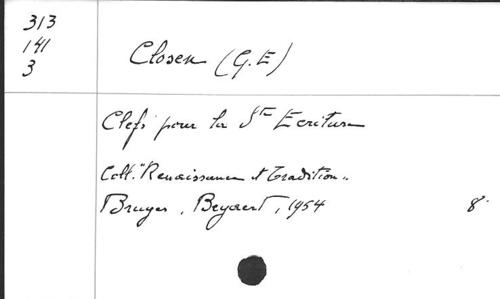 313
141
3
Closen (G.E)
Clefs pour la Ste Ecriture
Coll. "Renaissance et Tradition"
Bruges, Beyaert, 1954 8°